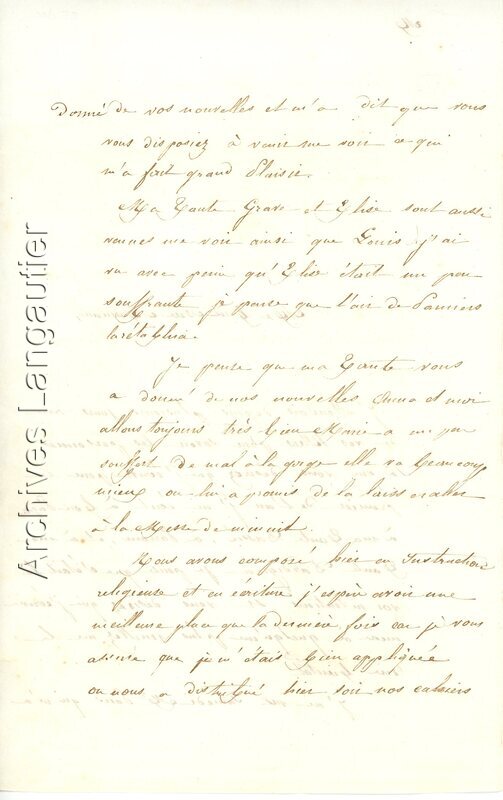 Donné de vos nouvelles et m'a dit que vous
vous disposiez à venir me voir ce qui
m'a fait grand Plaisir.
Ma Tante Grave et Elise sont aussi
venues me voir ainsi que Louis j'ai
vu avec peine qu'Elise était un peu
souffrante je pense que l'air de Pamiers
la rétablira.
Je pense que ma Tante vous
a donné de nos nouvelles Emma et moi
allons toujours très bien Marie a un peu
souffert de mal à la gorge elle va beaucoup
mieux on lui a promis de la laisser aller
à la Messe de minuit.
Nous avons composé hier en Instruction
religieuse et en écriture j'espère avoir une
meilleure place que la dernière fois car je vous
assure que je m'étais bien appliquée
on nous a distribué hier soir nos cahiers
Archives Langautier